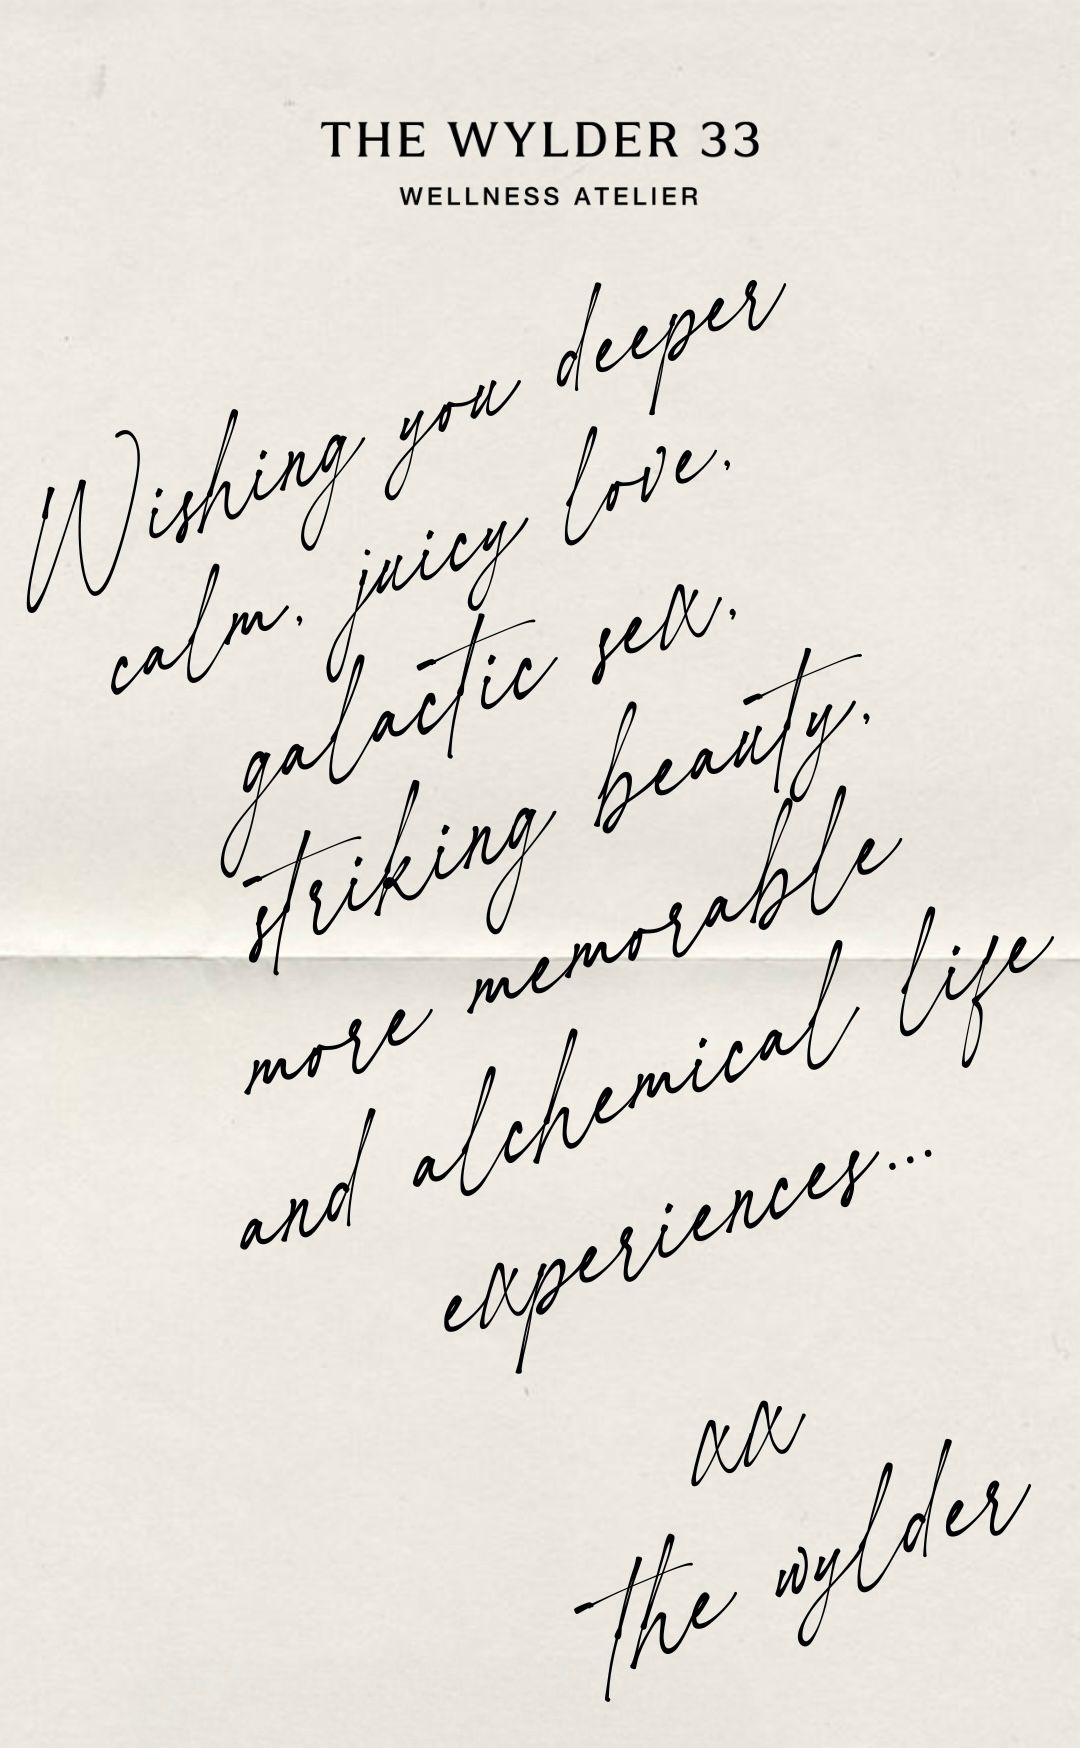 THE WYLDER 33
WELLNESS ATELIER
Wishing you deeper
calm, juicy love,
galactic sex,
striking beauty,
more memorable
and alchemical life
experiences...
xx
the wylder